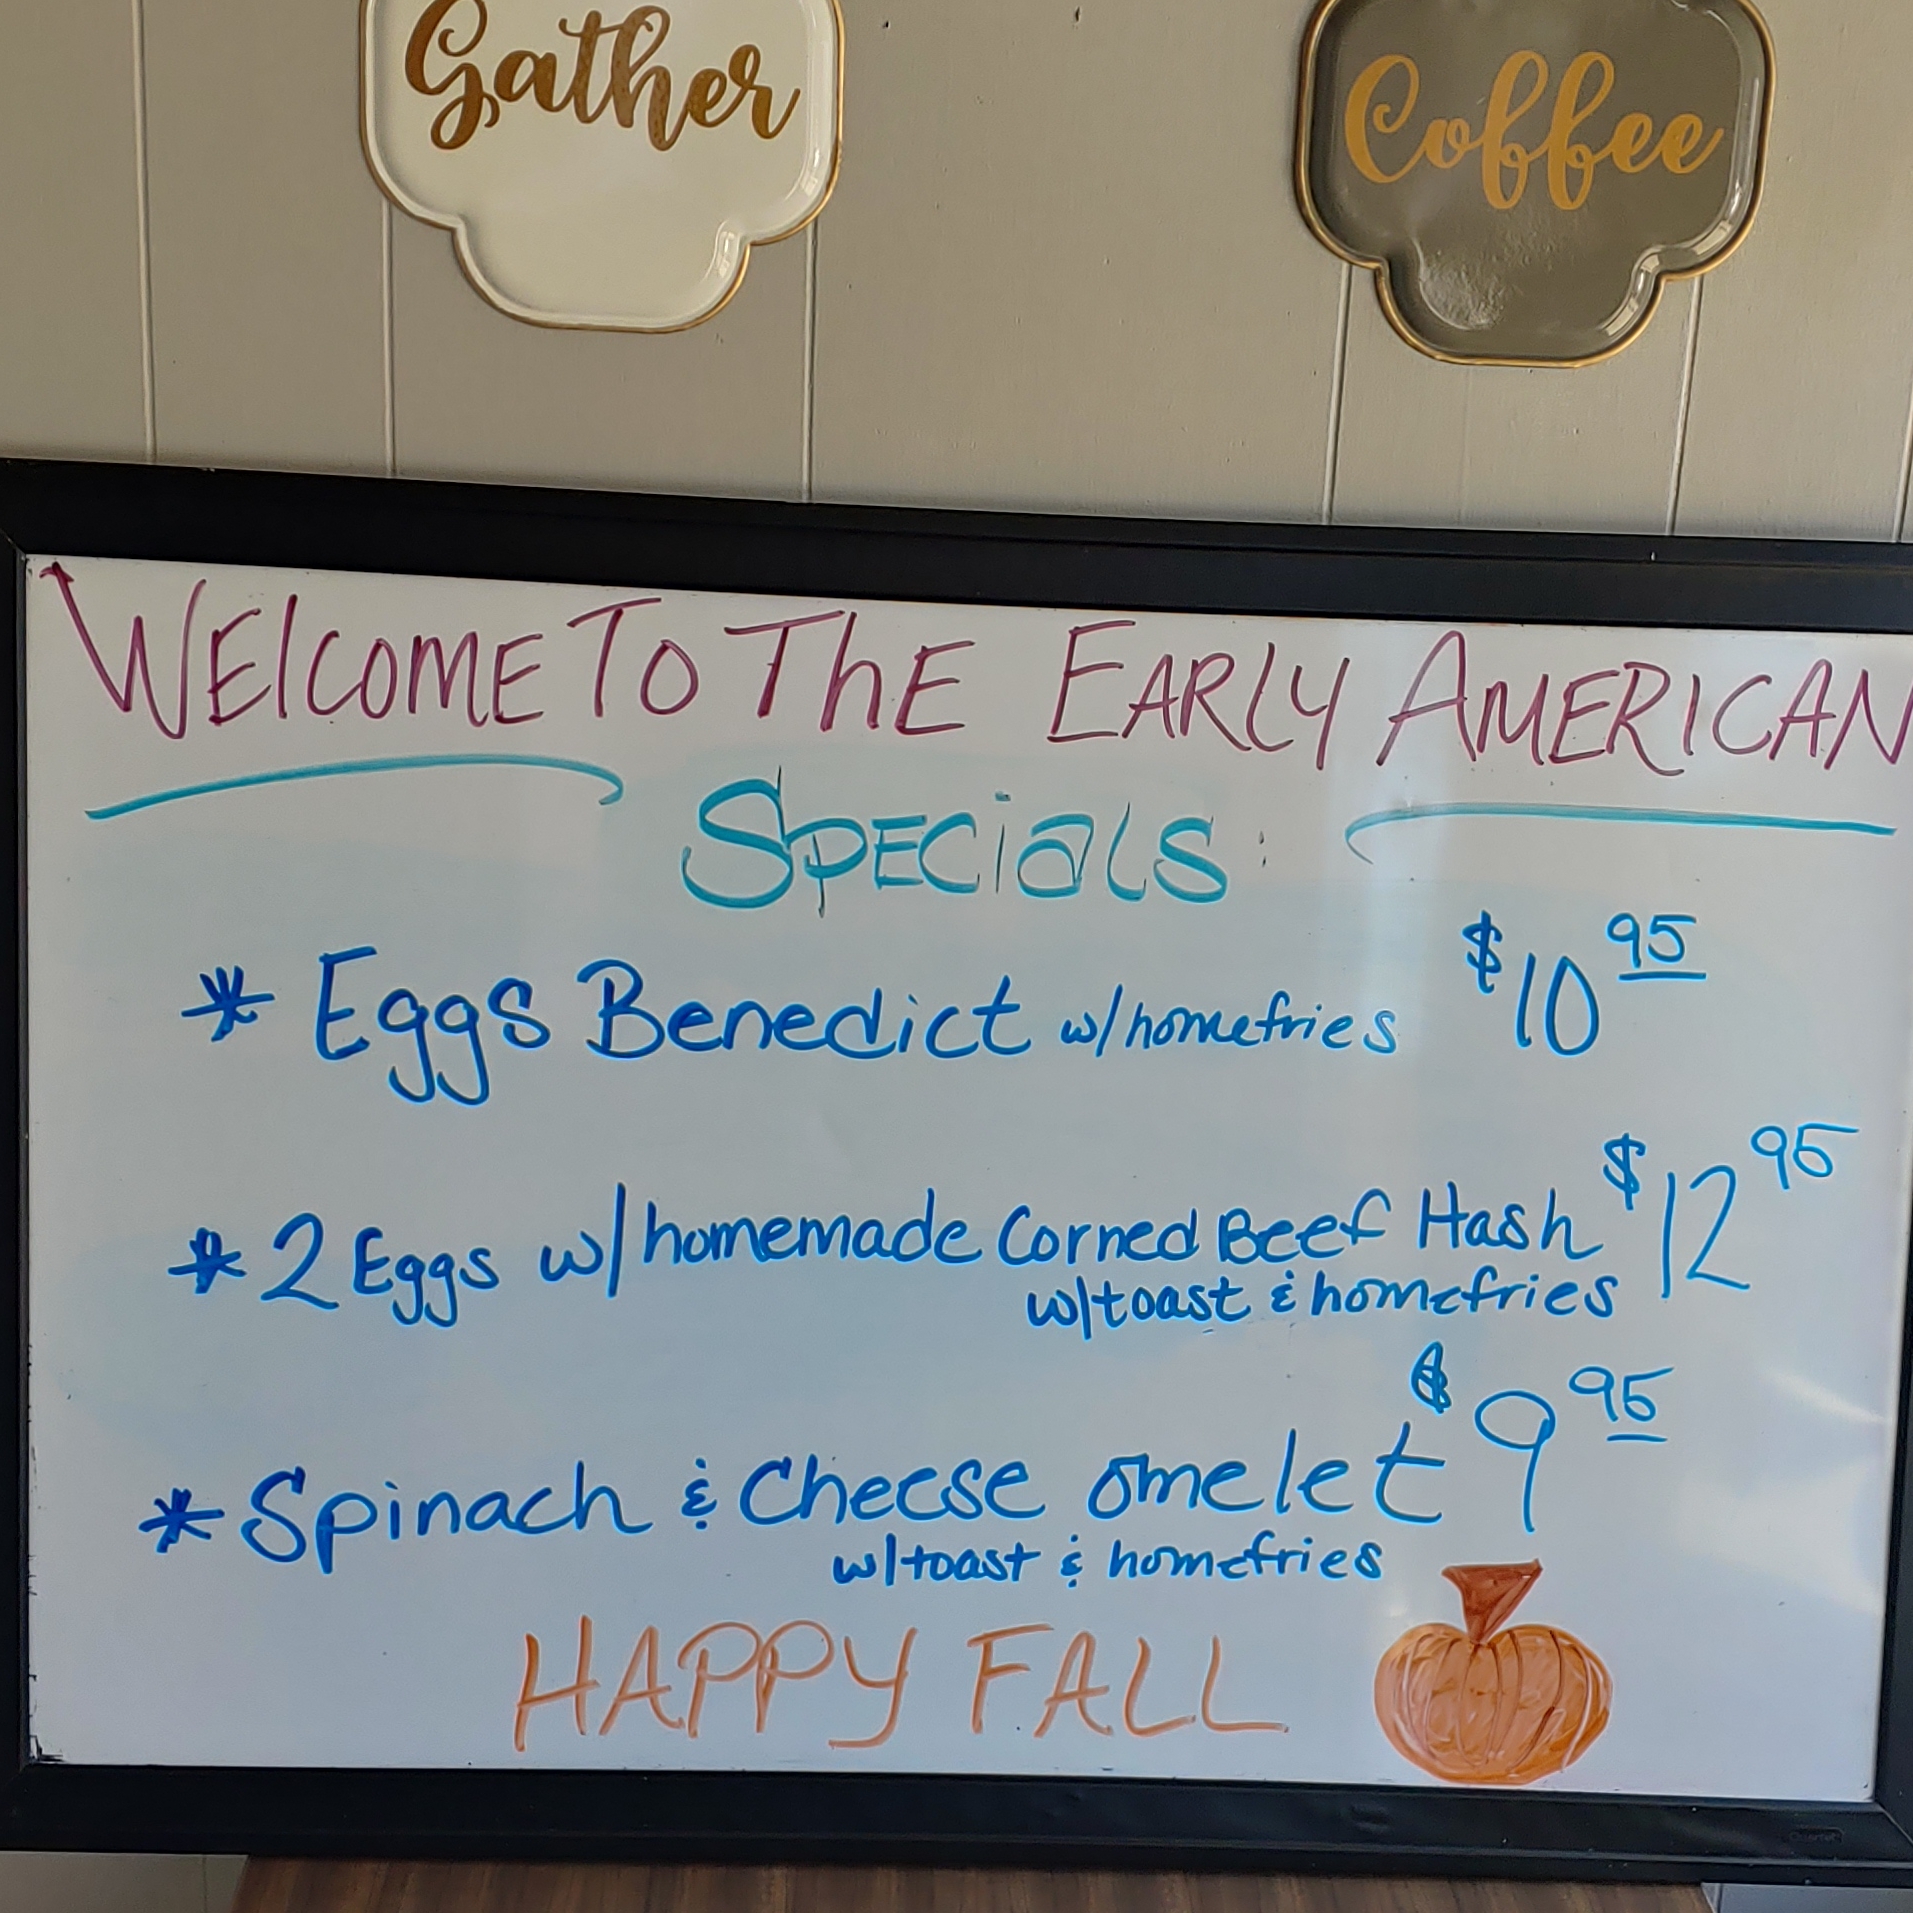 Gather
Coffee
WElCOME TO THE EARLY AMERICAN
SPECiaLS:
* Eggs Benedict w/homefries $10 95
* 2 Eggs w/homemade Corned Beef Hash $12 95
w/toast & homefries
* Spinach & Cheese omelet $9 95
w/toast & homefries
HAPPY FALL